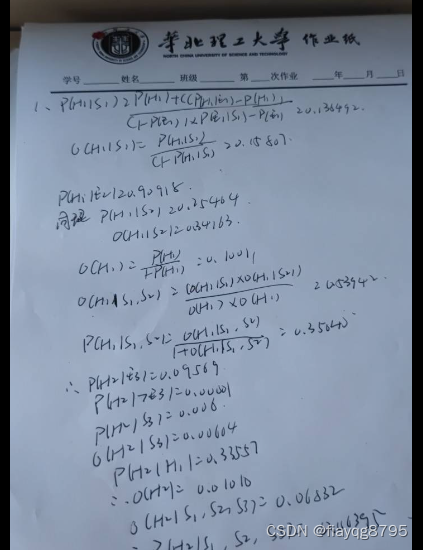 华北理工大学 作业纸
NORTH CHINA UNIVERSITY OF SCIENCE AND TECHNOLOGY
学号 姓名 班级 第 次作业 年 月 日
1、P(H1|S1)=P(H1)+
=0.136492
O(H1|S1)=P(H1|S1)/(1-P(H1|S1))=0.15807
P(H1|E2)=0.90918
同理 P(H1|S2)=0.25404
O(H1|S2)=0.34163
O(H1)=P(H1)/1-P(H1)=0.1001
O(H1|S1,S2)=(O(H1|S1)×O(H1|S2))/(O(H1)×O(H1))=0.53942
P(H1|S1,S2)=O(H1|S1,S2)/1+O(H1|S1,S2)=0.35040
∴P(H2|E3)=0.09569
P(H2|¬E3)=0.00001
P(H2|S3)=0.006
O(H2|S3)=0.00604
P(H2|H1)=0.33557
∴O(H2)=0.01010
O(H2|S1,S2,S3)=0.06832
CSDN @flayqg8795